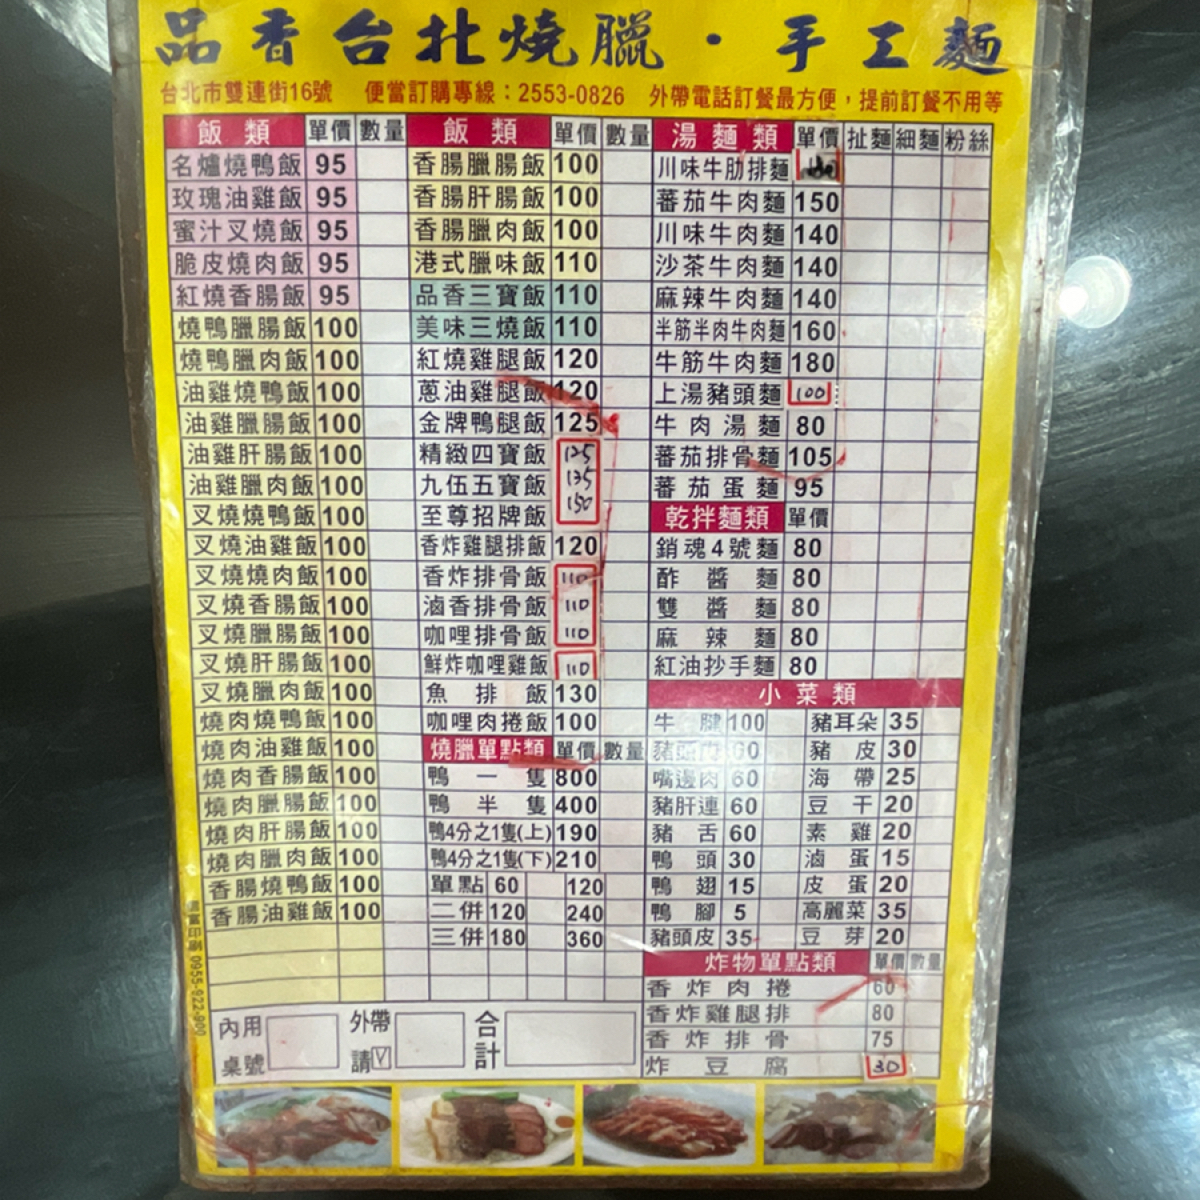 品香台北燒臘·手工麵
台北市雙連街16號 便當訂購專線：2553-0826 外帶電話訂餐最方便，提前訂餐不用等
飯類 單價 數量
名爐燒鴨飯 95
玫瑰油雞飯 95
蜜汁叉燒飯 95
脆皮燒肉飯 95
紅燒香腸飯 95
燒鴨臘腸飯 100
燒鴨臘肉飯 100
油雞燒鴨飯 100
油雞臘腸飯 100
油雞肝腸飯 100
油雞臘肉飯 100
叉燒燒鴨飯 100
叉燒油雞飯 100
叉燒燒肉飯 100
叉燒香腸飯 100
叉燒臘腸飯 100
叉燒肝腸飯 100
叉燒臘肉飯 100
燒肉燒鴨飯 100
燒肉油雞飯 100
燒肉香腸飯 100
燒肉臘腸飯 100
燒肉肝腸飯 100
燒肉臘肉飯 100
香腸燒鴨飯 100
香腸油雞飯 100
飯類 單價 數量
香腸臘腸飯 100
香腸肝腸飯 100
香腸臘肉飯 100
港式臘味飯 110
品香三寶飯 110
美味三燒飯 110
紅燒雞腿飯 120
蔥油雞腿飯 120
金牌鴨腿飯 125
精緻四寶飯 125
九伍五寶飯 135
至尊招牌飯 150
香炸雞腿排飯 120
香炸排骨飯 110
滷香排骨飯 110
咖哩排骨飯 110
鮮炸咖哩雞飯 110
魚排飯 130
咖哩肉捲飯 100
燒臘單點類 單價 數量
鴨一隻 800
鴨半隻 400
鴨4分之1隻(上) 190
鴨4分之1隻(下) 210
單點 60 120
二併 120 240
三併 180 360
湯麵類 單價 扯麵 細麵 粉絲
川味牛肋排麵
蕃茄牛肉麵 150
川味牛肉麵 140
沙茶牛肉麵 140
麻辣牛肉麵 140
半筋半肉牛肉麵 160
牛筋牛肉麵 180
上湯豬頭麵 100
牛肉湯麵 80
蕃茄排骨麵 105
蕃茄蛋麵 95
乾拌麵類 單價
銷魂4號麵 80
酢醬麵 80
雙醬麵 80
麻辣麵 80
紅油抄手麵 80
小菜類
牛腱 100 豬耳朵 35
豬頭肉 60 豬皮 30
嘴邊肉 60 海帶 25
豬肝連 60 豆干 20
豬舌 60 素雞 20
鴨頭 30 滷蛋 15
鴨翅 15 皮蛋 20
鴨腳 5 高麗菜 35
豬頭皮 35 豆芽 20
炸物單點類 單價 數量
香炸肉捲 60
香炸雞腿排 80
香炸排骨 75
炸豆腐 30
內用桌號 外帶請V 合計
0955-922-900